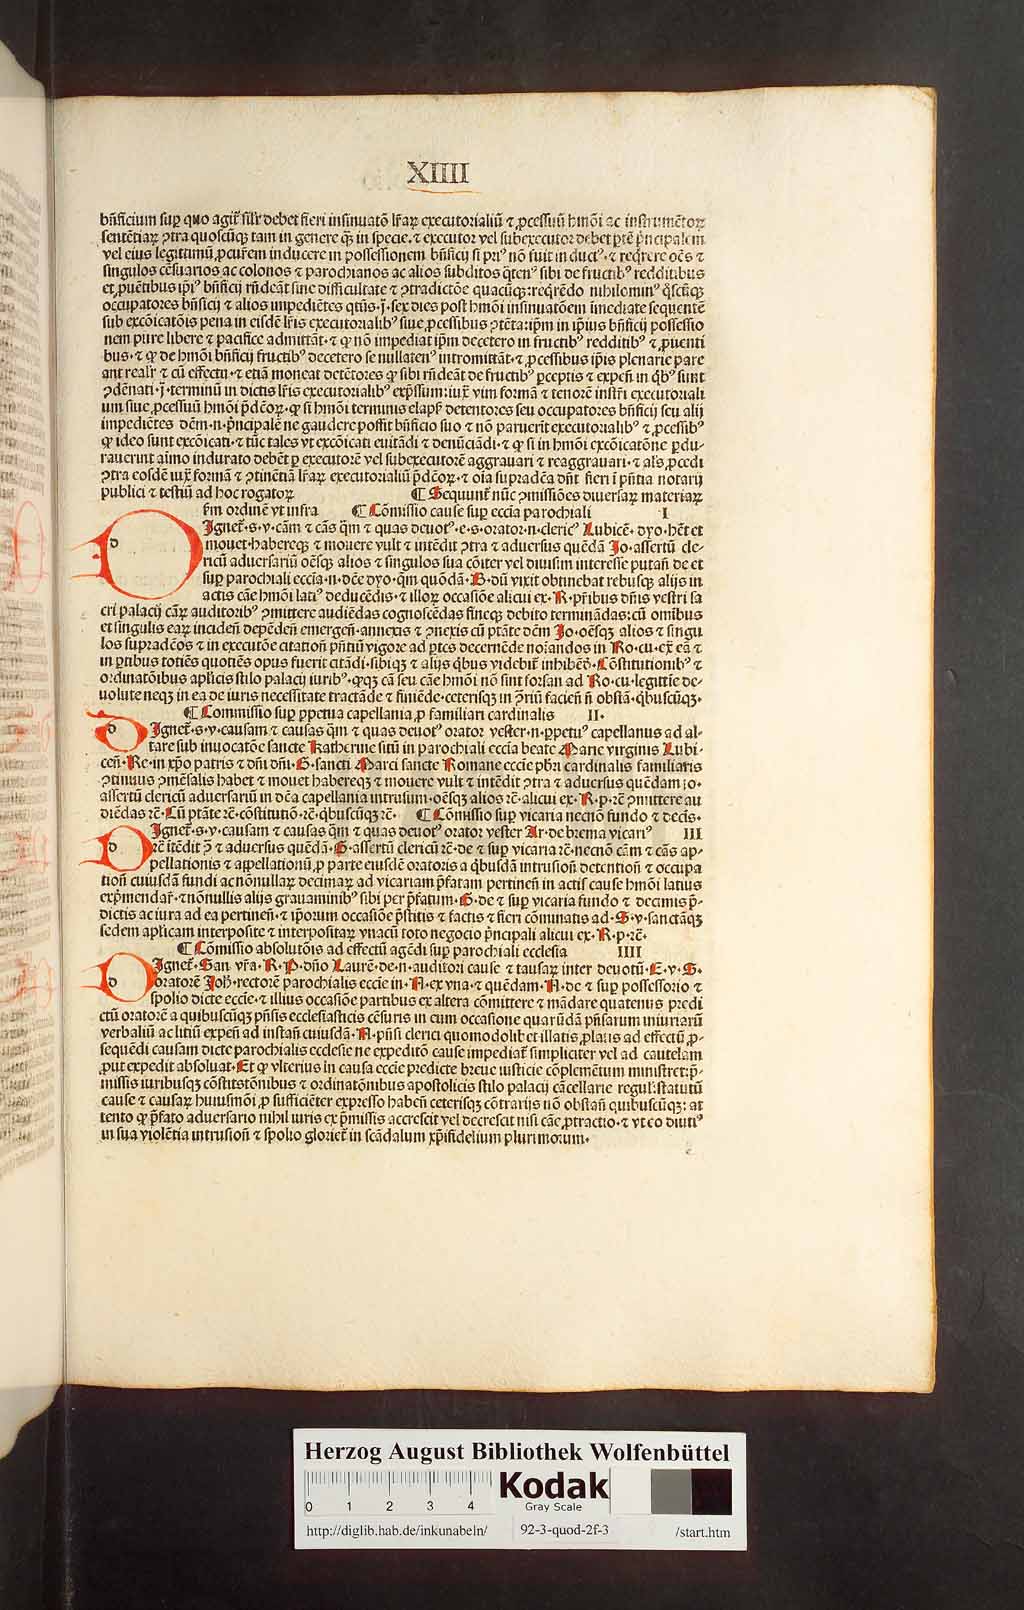 XIIII
bñficium suꝑ quo agit̃ silr̃ debet fieri insinuatõ lr̃aꝝ executorialiũ ⁊ ꝓcessuũ hmõi ac instrumẽtoꝝ
sentẽtiaꝝ ꝯtra quoscũqꝫ tam in genere qꝫ̃ in specie. ⁊ executor vel subexecutor debet ꝑtẽ pͥncipalem
vel eius legitimũ ꝓcur̃em inducere in possessionem bñficij si priꝰ nõ fuit inductꝰ· ⁊ reqͥrere oẽs ⁊
singulos cẽsuarios ac colonos ⁊ parochianos ac alios subditos qͣtenꝰ sibi de fructibꝰ redditibus
et ꝓuẽtibus ip̃iꝰ bñficij rñdeãt sine difficultate ⁊ ꝯtradictõe quacũqꝫ: reqͥrẽdo nihilominꝰ qͦscũqꝫ
occupatores bñficij ⁊ alios impediẽtes qtñs·j̃· sex dies post hmõi insinuatõem ĩmediate sequentẽ
sub excõicatõis pena in eisdẽ lr̃is executorialibꝰ siue ꝓcessibus ꝯtẽta: ip̃m in ip̃ius bñficij possessio
nem pure libere ⁊ pacifice admittãt· ⁊ ꝙ nõ impediat ip̃m decetero in fructibꝰ redditibꝰ ⁊ ꝓuenti
bus· ⁊ ꝙ de hmõi bñficij fructibꝰ decetero se nullatenꝰ intromittãt· ⁊ ꝓcessibus ip̃is plenarie pare
ant realr̃ ⁊ cũ effectu· ⁊ etiã moneat detẽtores ꝙ sibi rñdeãt de fructibꝰ ꝑceptis ⁊ expeñ in qͥbꝰ sunt
ꝯdẽnati·j̃· terminũ in dictis lr̃is executorialibꝰ exp̃ssum: iux̃ vim formã ⁊ tenorẽ instr̃i executoriali
um siue ꝓcessuũ hmõi p̃dc̃oꝝ· ꝙ si hmõi terminis elapß detentores seu occupatores bñficij seu alij
impediẽtes dc̃m·n·pͥncipalẽ ne gaudere possit bñficio suo ⁊ nõ paruerĩt executorialibꝰ ⁊ ꝓcessibꝰ
ꝙ ideo sunt excõicati· ⁊ tũc tales vt excõicati euitãdi ⁊ denũciãdi· ⁊ ꝙ si in hmõi excõicatõne ꝑdu-
rauerint aĩmo indurato debẽt ꝑ executorẽ vel subexecutorẽ aggrauari ⁊ reaggrauari· ⁊ als̃ ꝓcedi
ꝯtra eosdẽ iux̃ formã ⁊ ꝯtinẽtiã lr̃aꝝ executorialiũ p̃dc̃oꝝ· ⁊ oĩa supradc̃a dñt fieri ĩ p̃ntia notarij
publici ⁊ testiũ ad hoc rogatoꝝ ¶ Sequunt̃ nũc ꝯmissiões diuersaꝝ materiaꝝ
fm ordinẽ vt infra ¶ Cõmissio cause suꝑ ecc̃ia parochiali I
Dignet̃·s·v·cãm ⁊ cãs qͣm ⁊ quas deuotꝰ·e·s·orator·n·clericꝰ Lubicẽ·dyo·hẽt et
mouet·habereqꝫ ⁊ mouere vult ⁊ intẽdit ꝯtra ⁊ aduersus quẽdã Jo·assertũ cle-
ricũ aduersariũ oẽsqꝫ alios ⁊ singulos sua cõiter vel diuisim interesse putañ de et
suꝑ parochiali ecc̃ia·n·dc̃e dyo·qͣm quõdã·B·dũ vixit obtinebat rebusqꝫ alijs in
actis cãe hmõi latiꝰ deducẽdis· ⁊ illoꝝ occasiõe alicui ex·R·pr̃ibus dñis vestri sa
cri palacij cãꝝ auditoribꝰ ꝯmittere audiẽdas cognoscẽdas fineqꝫ debito terminãdas: cũ omĩbus
et singulis eaꝝ inciden̄ depẽden̄ emergen̄·annexis ⁊ ꝯnexis cũ ptãte dc̃m Jo·oẽsqꝫ alios ⁊ singu
los supradc̃os ⁊ in executõe citation̄ p̃ntiũ vigore ad ꝑtes decernẽde noĩandos in Ro·cu·ex̃ eã ⁊
in ꝑtibus totiẽs quotiẽs opus fuerit citãdi·sibiqꝫ ⁊ alijs qͥbus videbit̃ inhibẽdi·Cõstitutionibꝰ ⁊
ordinatõibus apl̃icis stilo palacij iuribꝰ·ꝙqꝫ cã seu cãe hmõi nõ sint forsan ad Ro·cu·legittĩe de-
uolute neqꝫ in ea de iuris necessitate tractãde ⁊ finiẽde·ceterisqꝫ in ꝯriũ facien̄ ñ obstã·qͥbuscũqꝫ·
¶ Commissio suꝑ ꝑpetua capellania ꝓ familiari cardinalis II·
Dignet̃·s·v·causam ⁊ causas qͣm ⁊ quas deuotꝰ orator vester·n·ꝑpetuꝰ capellanus ad al-
tare sub inuocatõe sancte Katherine sitũ in parochiali ecc̃ia beate Marie virginis Lubi-
cen̄·Re·in xp̃o patris ⁊ dñi dñi·G·sancti Marci sancte Romane ecc̃ie pbr̃i cardinalis familiaris
ꝯtinuus ꝯmẽsalis habet ⁊ mouet habereqꝫ ⁊ mouere vult ⁊ intẽdit ꝯtra ⁊ aduersus quẽdam jo·
assertũ clericũ aduersariũ in dc̃a capellania intrusum·oẽsqꝫ alios rẽ·alicui ex·R·p·rẽ ꝯmittere au
diẽdas rẽ·Cũ ptãte rẽ·cõstitutiõ·rẽ·qͥbuscũqꝫ rẽ· ¶ Cõmissio suꝑ vicaria necnõ fundo ⁊ decis·
Dignet̃·s·v·causam ⁊ causas qͣm ⁊ quas deuotꝰ orator vester Ar·de brema vicariꝰ III
rẽ ĩtẽdit ꝯ̃ ⁊ aduersus quẽdã·G·assertũ clericũ rẽ·de ⁊ suꝑ vicaria rẽ·necnõ cãm ⁊ cãs ap-
pellationis ⁊ appellationũ ꝓ parte eiusdẽ oratoris a qͥbusdã intrusion̄ detention̄ ⁊ occupa
tion̄ cuiusdã fundi ac nõnullaꝝ decimaꝝ ad vicariam p̃fatam pertinen̄ in actis cause hmõi latius
exp̃mendar̃· ⁊ nõnullis alijs grauaminibꝰ sibi per p̃fatum·G·de ⁊ suꝑ vicaria fundo ⁊ decimis p̃-
dictis ac iura ad ea pertinen̄· ⁊ ip̃orum occasiõe p̃stitis ⁊ factis ⁊ fieri cõminatis ad·S·v·sanctãqꝫ
sedem apl̃icam interposite ⁊ interpositaꝝ vnacũ toto negocio pͥncipali alicui ex·R·p·rẽ·
¶ Cõmissio absolutõis ad effectũ agẽdi suꝑ parochiali ecclesia IIII
Dignet̃·San·vr̃a·R·P·dño Laurẽ·de·n·auditori cause ⁊ causaꝝ inter deuotũ·E·v·S·
oratorẽ Joh̃·rectorẽ parochialis ecc̃ie in·A·ex vna·⁊ quẽdam·A·de ⁊ suꝑ possessorio ⁊
spolio dicte ecc̃ie·⁊ illius occasiõe partibus ex altera cõmittere ⁊ mãdare quatenus predi
ctũ oratorẽ a quibuscũqꝫ p̃nsis ecclesiasticis cẽsuris in eum occasione quarũdã p̃nsarum iniuriarũ
verbaliũ ac litiũ expen̄ ad instan̄ cuiusdã·A·p̃nsi clerici quomodolibet illatis ꝓlatis ad effectũ ꝓ-
sequẽdi causam dicte parochialis ecclesie ne expeditõ cause impediat̃ simpliciter vel ad cautelam
ꝓut expedit absoluat·Et ꝙ vlterius in causa ecc̃ie predicte breue iusticie cõplemẽtum ministret: p̃-
missis iuribusqꝫ cõstitutõnibus ⁊ ordinatõnibus apostolicis stilo palacij cãcellarie regul̃ statutũ
cause ⁊ causaꝝ huiusmõi ꝓ sufficiẽter expresso haben̄ ceterisqꝫ cõtrarijs nõ obstan̄ quibuscũqꝫ: at
tento ꝙ p̃fato aduersario nihil iuris ex p̃missis accrescit vel decrescit nisi cãe ꝓtractio·⁊ vt eo diutiꝰ
in sua violẽtia intrusion̄ ⁊ spolio glorier̃ in scãdalum xp̃ifidelium plurimorum·
c
Herzog August Bibliothek Wolfenbüttel
0 1 2 3 4
Kodak
Gray Scale
http://diglib.hab.de/inkunabeln/ 92-3-quod-2f-3 /start.htm